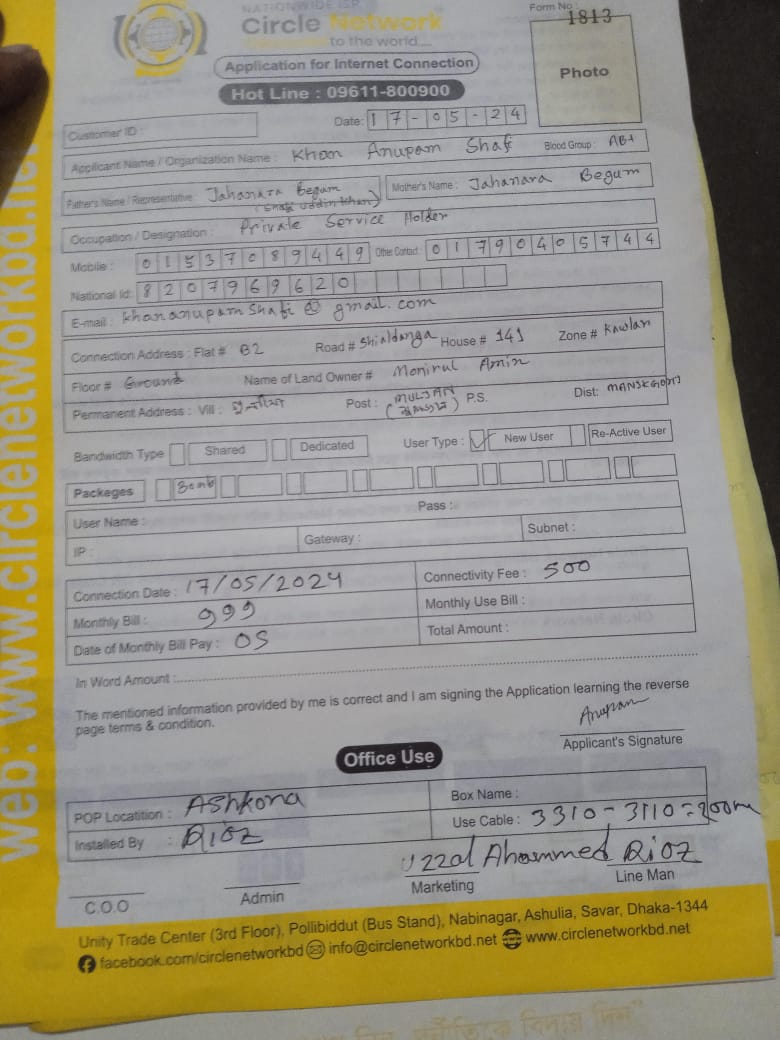 web: www.circlenetworkbd.net
NATIONWIDE ISP
Circle Network
to the world...
Form No : 1813
Photo
Application for Internet Connection
Hot Line : 09611-800900
Customer ID :
Date: 17-05-24
Applicant Name / Organization Name : Khan Anupam Shafi Blood Group : AB+
Father's Name / Representative: Jahanara Begum Mother's Name : Jahanara Begum
(Shafi Uddin Khan)
Occupation / Designation : Private Service Holder
Mobile : 01537089449 Other Contact: 01790405744
National Id: 8207969620
E-mail : khananupamshafi@gmail.com
Connection Address : Flat # B2 Road # Shialdanga House # 141 Zone # Kawlar
Floor # Ground Name of Land Owner # Monirul Amin
Permanent Address : Vill : Post : P.S. Dist:
Bandwidth Type Shared Dedicated User Type : New User Re-Active User
Packages 30mb
User Name : Pass :
IP : Gateway : Subnet :
Connection Date : 17/05/2024 Connectivity Fee : 500
Monthly Bill : 999 Monthly Use Bill :
Date of Monthly Bill Pay : 05 Total Amount :
In Word Amount :
The mentioned information provided by me is correct and I am signing the Application learning the reverse
page terms & condition.
Anupam
Applicant's Signature
Office Use
POP Locatition : Ashkona Box Name :
Installed By : Rioz Use Cable : 3310-3110=200m
Uzzal Ahammed Rioz
C.O.O Admin Marketing Line Man
Unity Trade Center (3rd Floor), Pollibiddut (Bus Stand), Nabinagar, Ashulia, Savar, Dhaka-1344
facebook.com/circlenetworkbd info@circlenetworkbd.net www.circlenetworkbd.net